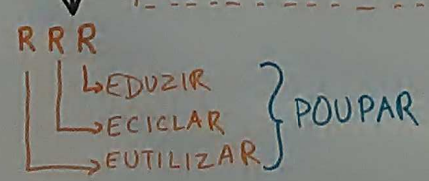 R R R
EDUZIR
ECICLAR
EUTILIZAR
POUPAR